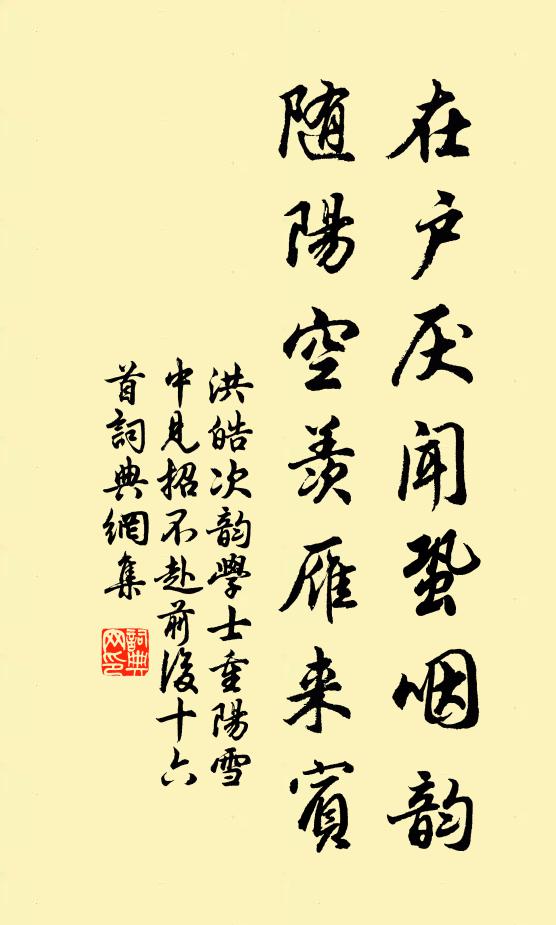 在户厌闻蛩咽韵
随陽空羡雁来賓
洪皓次韵學士重陽雪
中見招不赴前後十六
首詞典網集
詞典
网印